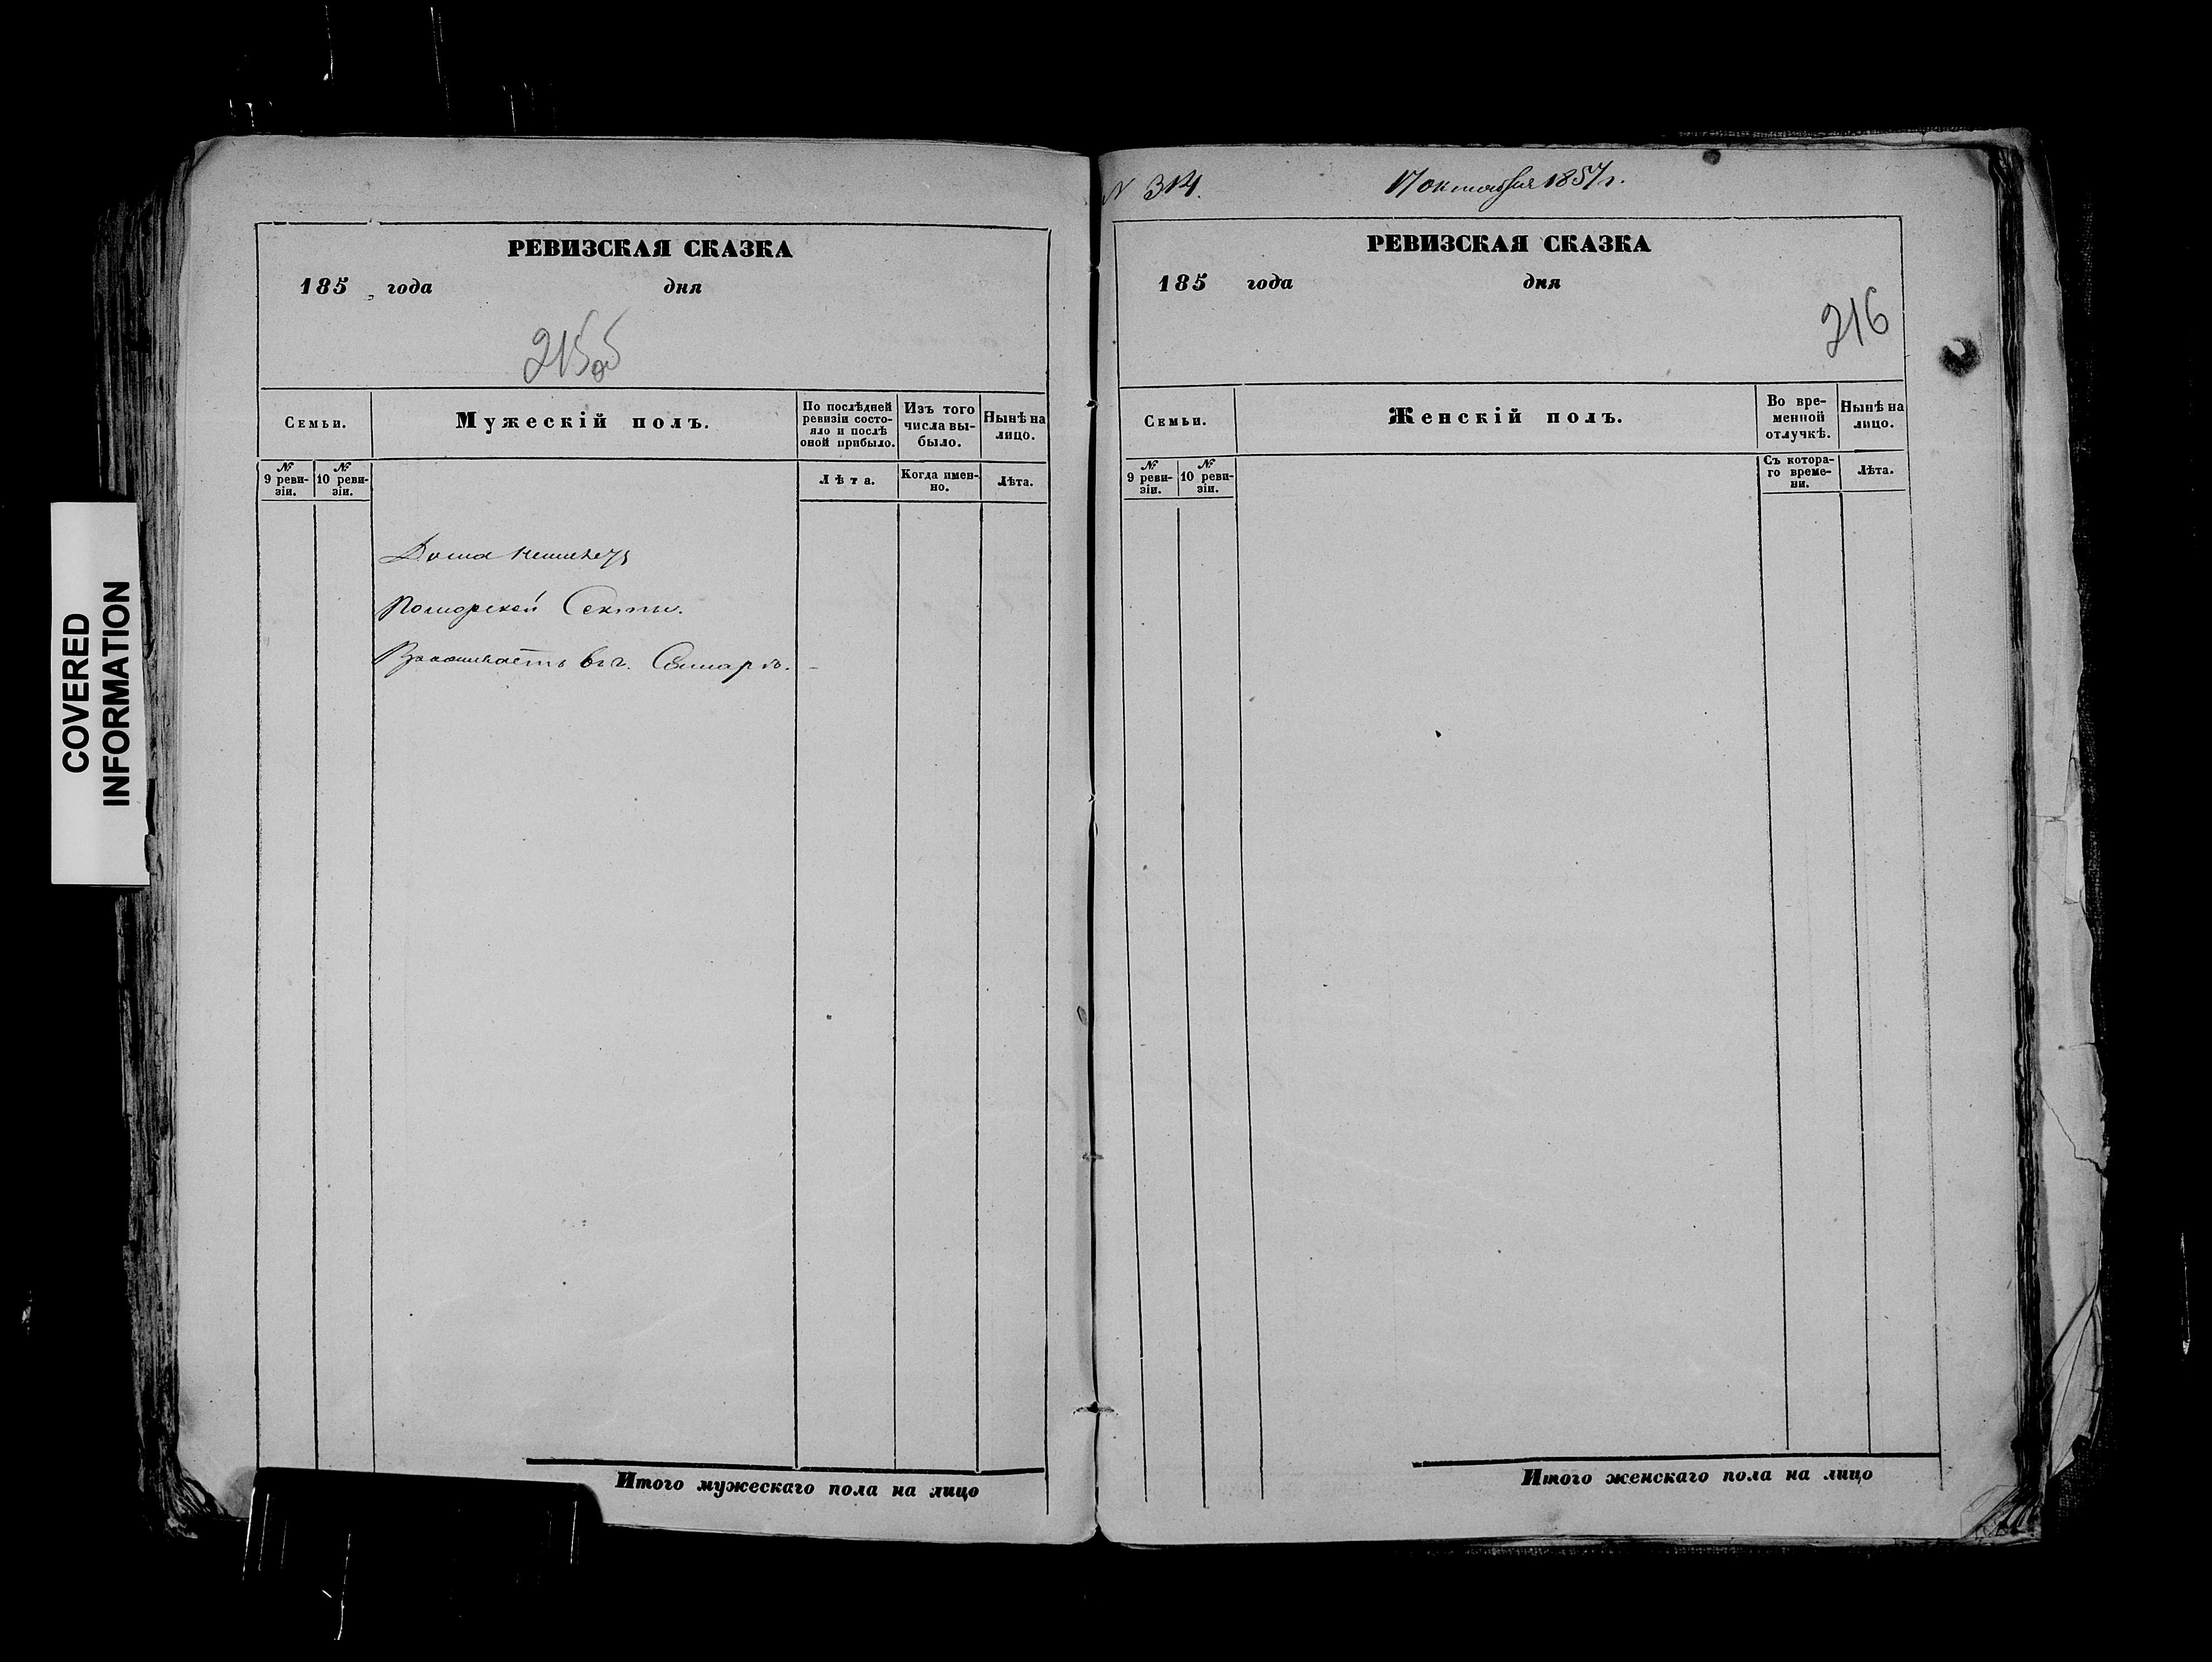 COVERED
INFORMATION
РЕВИЗСКАЯ СКАЗКА
185 года дня
215об
Семьи.
Мужескій полъ.
По послѣдней
ревизіи состо-
яло и послѣ
оной прибыло.
Изъ того
числа вы-
было.
Нынѣ на
лицо.
№
9 реви-
зіи.
№
10 реви-
зіи.
Лѣта.
Когда имен-
но.
Лѣта.
Дома неимеетъ
Поморской Секты.
въ г. Самарѣ.
Итого мужескаго пола на лицо
N 314.
17 октября 1857 г.
РЕВИЗСКАЯ СКАЗКА
185 года дня
216
Семьи.
Женскій полъ.
Во вре-
менной
отлучкѣ.
Нынѣ на
лицо.
№
9 реви-
зіи.
№
10 реви-
зіи.
Съ котора-
го време-
ни.
Лѣта.
Итого женскаго пола на лицо